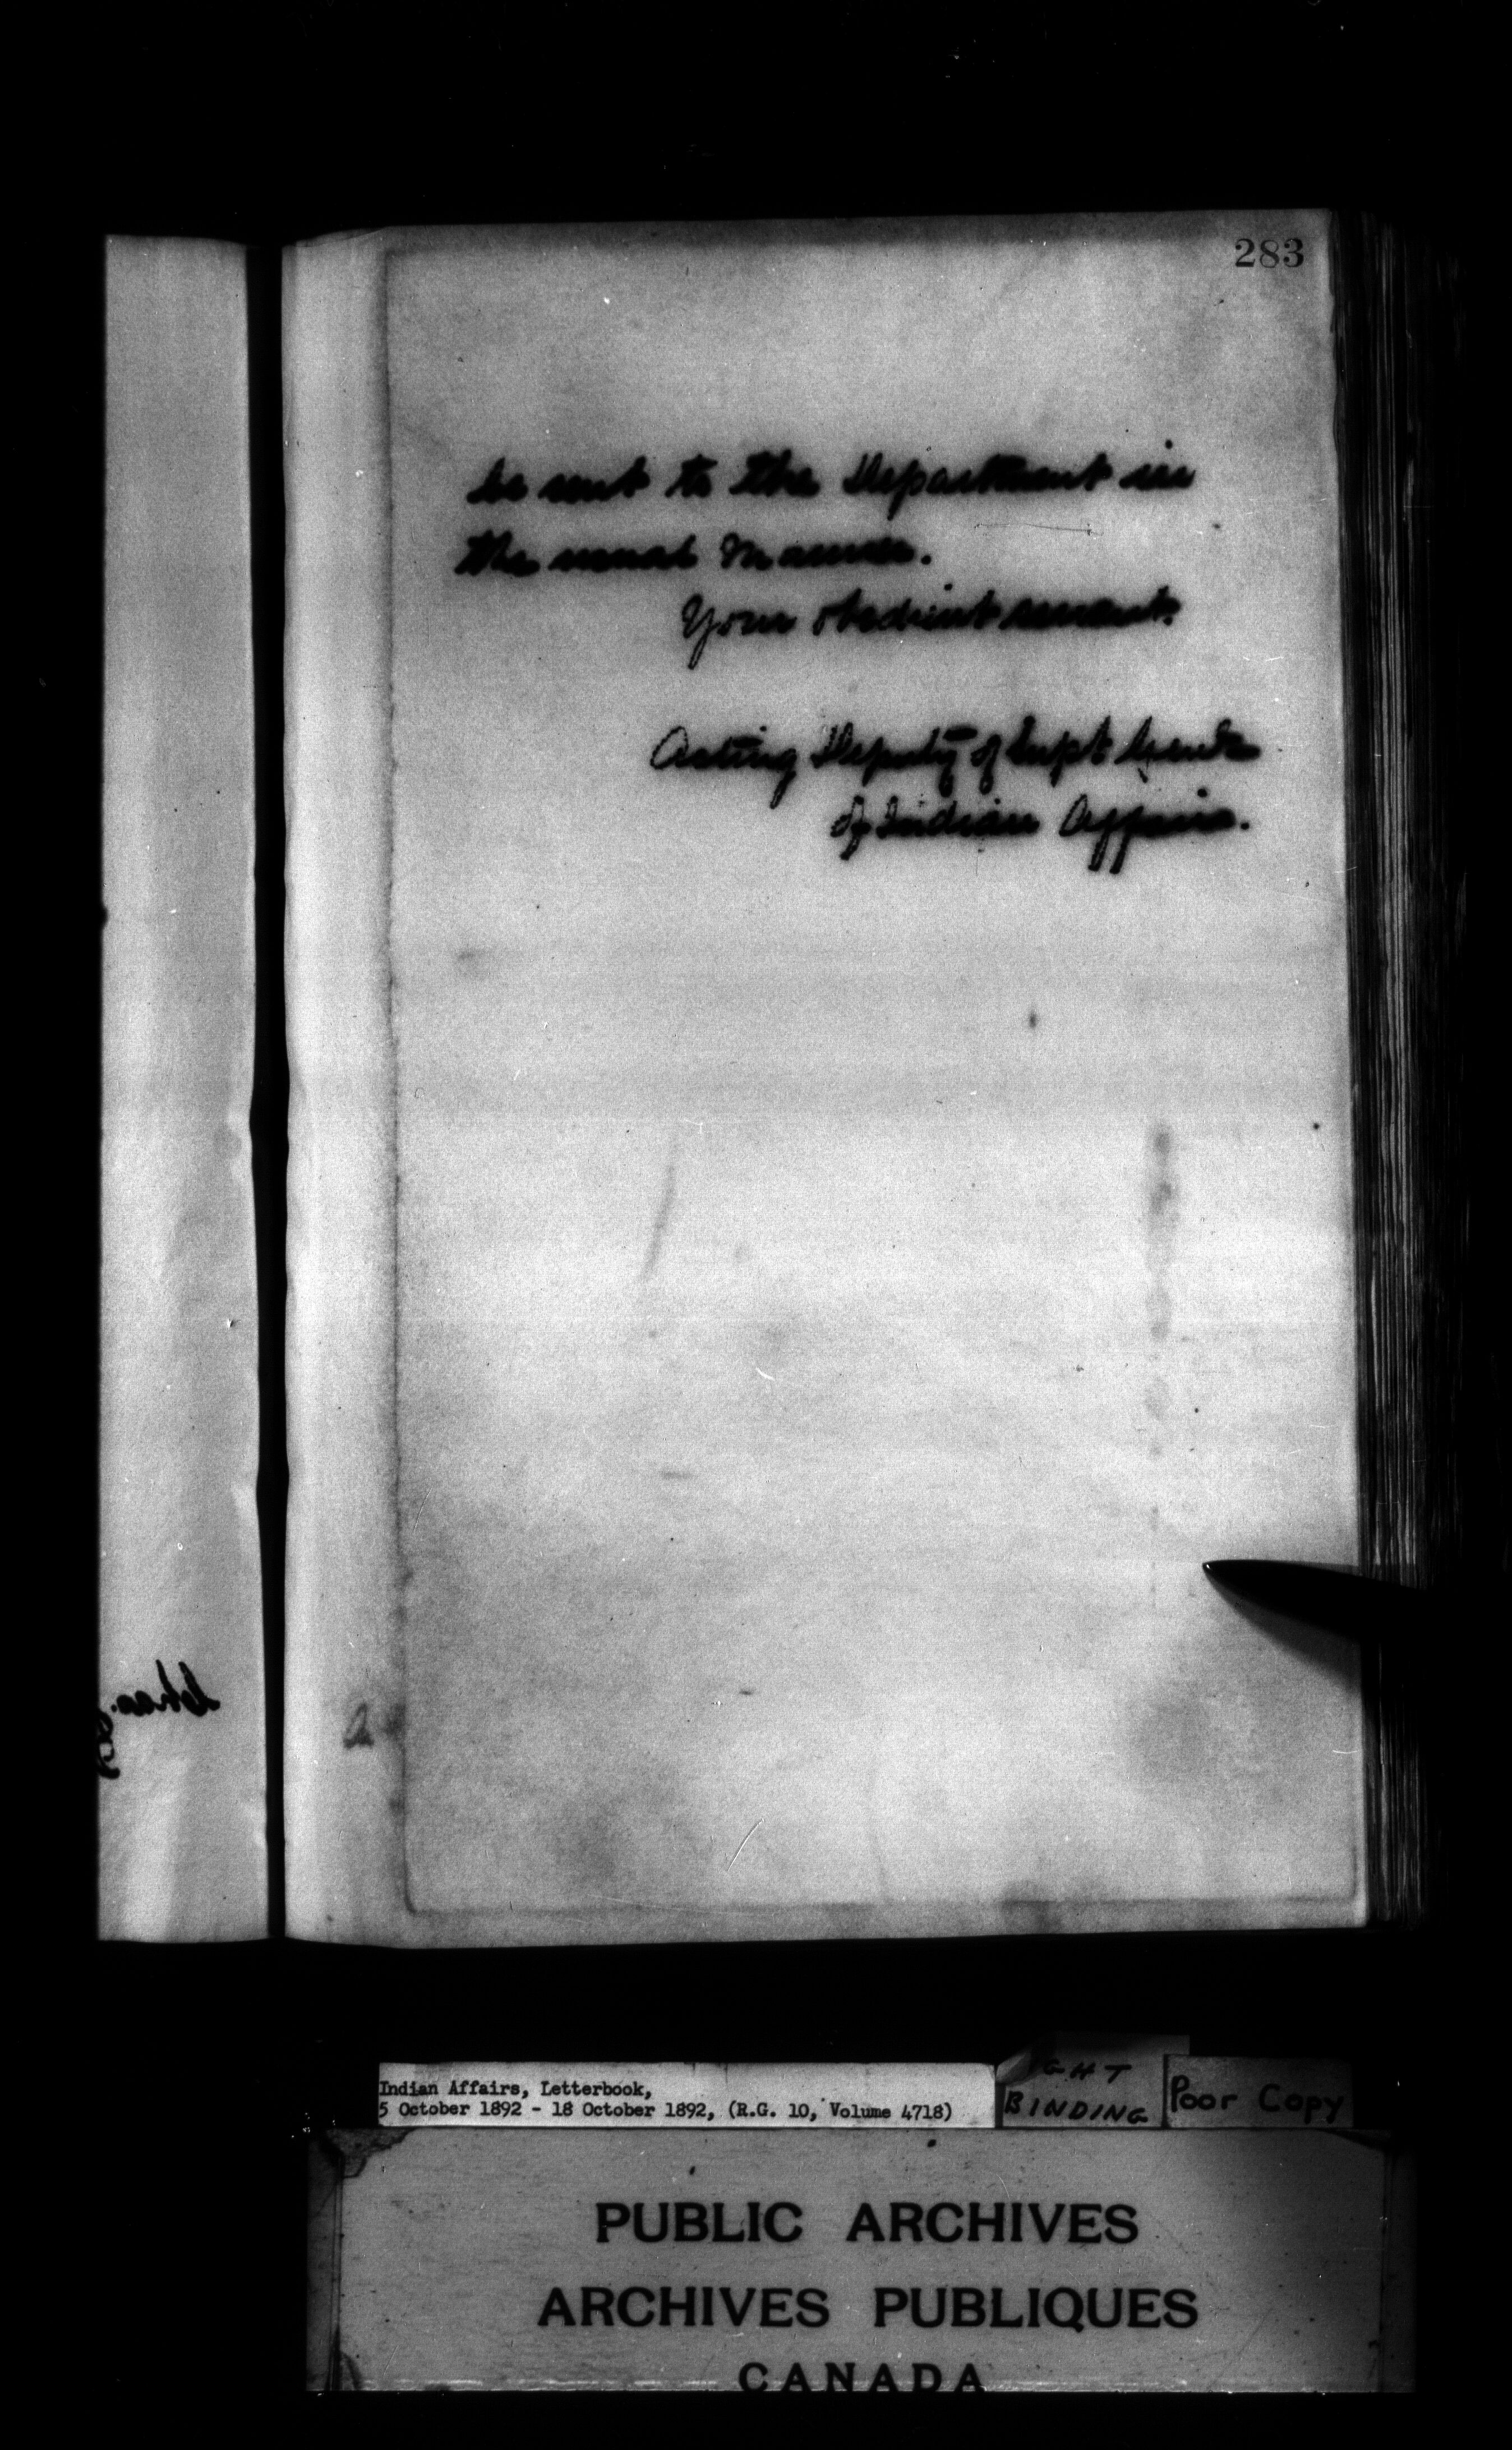 283
be sent to the Department in
the usual Manner.
Your obedient servant.
Acting Deputy of Supt Genl
of Indian Affairs.
Chas.
Indian Affairs, Letterbook,
5 October 1892 - 18 October 1892, (R.G. 10, Volume 4718)
GHT
BINDING
Poor Copy
PUBLIC ARCHIVES
ARCHIVES PUBLIQUES
CANADA